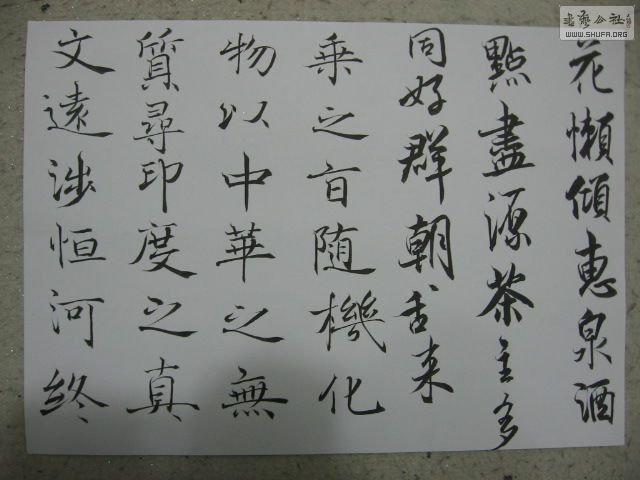 書藝公社
WWW.SHUFA.ORG
花懶傾惠泉酒
點盡源茶主多
同好群朝来
乘之旨随機化
物以中華之無
質尋印度之真
文遠涉恒河終